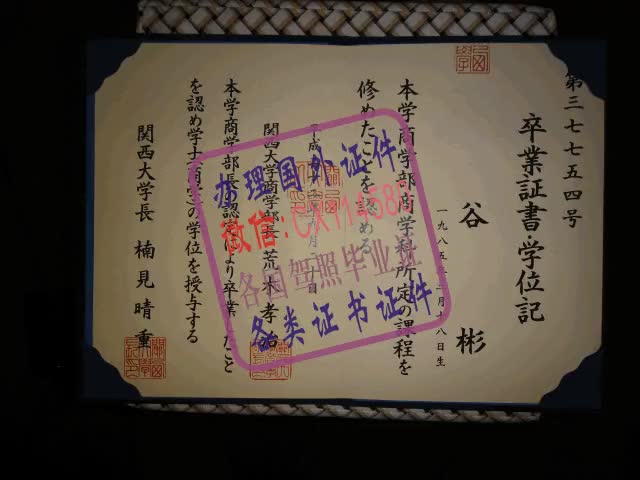 第三七七五四号
卒業証書・学位記
谷 彬
本学商学部商学科所定の課程を
修めたことを認める
関西大学商学部長 荒木孝治
本学商学部長の認定により卒業したこと
を認め学士(商学)の学位を授与する
関西大学長 楠見晴重
办理国外证件
微信:CX114580
各国驾照毕业证
各类证书证件